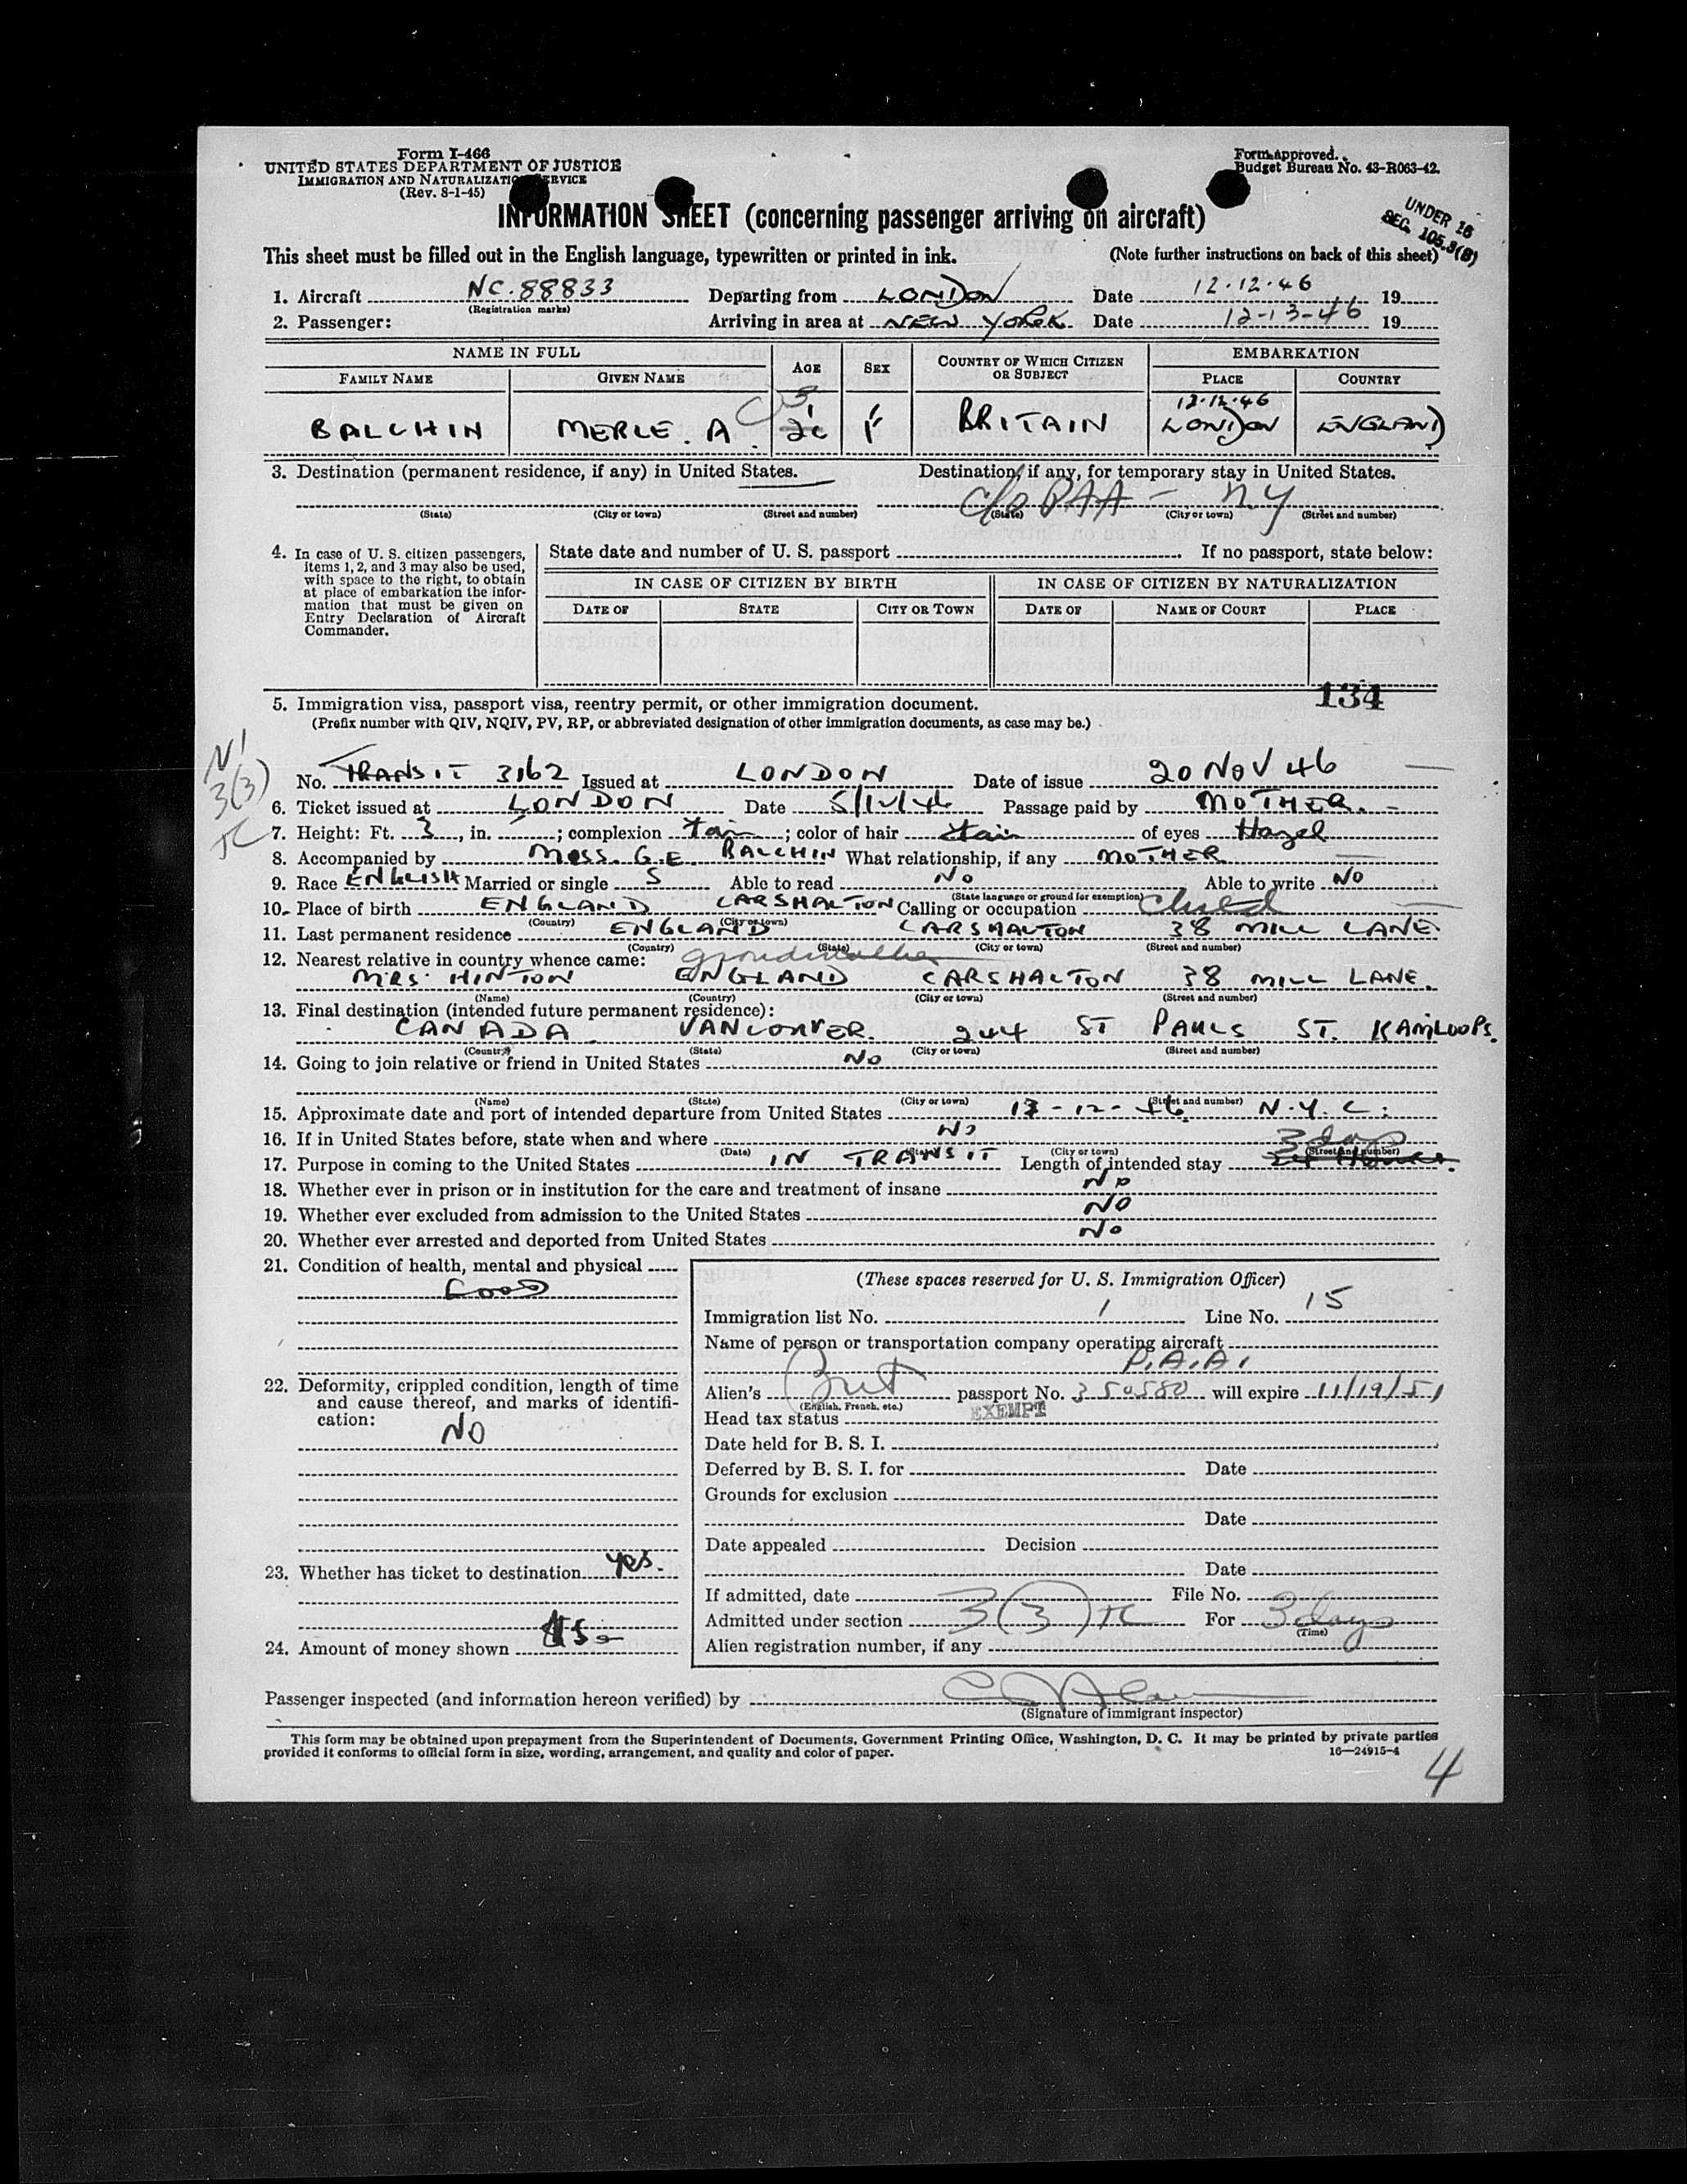 Form I-466
UNITED STATES DEPARTMENT OF JUSTICE
IMMIGRATION AND NATURALIZATION SERVICE
(Rev. 8-1-45)
Form approved.
Budget Bureau No. 43-R063-42.
UNDER 16
SEC. 105.3(B)
INFORMATION SHEET (concerning passenger arriving on aircraft)
This sheet must be filled out in the English language, typewritten or printed in ink. (Note further instructions on back of this sheet)
1. Aircraft NC.88833 Departing from LONDON Date 12.12.46 19
(Registration marks)
2. Passenger: Arriving in area at NEW YORK Date 12-13-46 19
NAME IN FULL AGE SEX COUNTRY OF WHICH CITIZEN OR SUBJECT EMBARKATION
FAMILY NAME GIVEN NAME PLACE COUNTRY
3 12.12.46
BALCHIN MERLE. A. F BRITAIN LONDON ENGLAND
3. Destination (permanent residence, if any) in United States. Destination, if any, for temporary stay in United States.
c/o PAA - NY
(State) (City or town) (Street and number) (State) (City or town) (Street and number)
4. In case of U. S. citizen passengers, items 1, 2, and 3 may also be used, with space to the right, to obtain at place of embarkation the information that must be given on Entry Declaration of Aircraft Commander.
State date and number of U. S. passport If no passport, state below:
IN CASE OF CITIZEN BY BIRTH IN CASE OF CITIZEN BY NATURALIZATION
DATE OF STATE CITY OR TOWN DATE OF NAME OF COURT PLACE
134
5. Immigration visa, passport visa, reentry permit, or other immigration document.
(Prefix number with QIV, NQIV, PV, RP, or abbreviated designation of other immigration documents, as case may be.)
3(3)
No. TRANSIT 3162 Issued at LONDON Date of issue 20 NOV 46
6. Ticket issued at LONDON Date 5/12/46 Passage paid by MOTHER.
7. Height: Ft. 3, in. ; complexion fair; color of hair fair of eyes Hazel
8. Accompanied by MRSS. G.E. BALCHIN What relationship, if any MOTHER
9. Race ENGLISH Married or single S Able to read No Able to write No
(State language or ground for exemption)
10. Place of birth ENGLAND CARSHALTON Calling or occupation child
(Country) (City or town)
11. Last permanent residence ENGLAND CARSHALTON 38 MILL LANE
(Country) (State) (City or town) (Street and number)
12. Nearest relative in country whence came: grandmother
MRS. HINTON ENGLAND CARSHALTON 38 MILL LANE.
(Name) (Country) (City or town) (Street and number)
13. Final destination (intended future permanent residence):
CANADA VANCOUVER. 244 ST PAULS ST. KAMLOOPS.
(Country) (State) (City or town) (Street and number)
14. Going to join relative or friend in United States No
(Name) (State) (City or town) (Street and number)
15. Approximate date and port of intended departure from United States 13-12-46 N.Y.C.
16. If in United States before, state when and where No
(Date) (State) (City or town) (Street and number)
3 days
17. Purpose in coming to the United States IN TRANSIT Length of intended stay 24 Hours.
18. Whether ever in prison or in institution for the care and treatment of insane No
19. Whether ever excluded from admission to the United States NO
20. Whether ever arrested and deported from United States No
21. Condition of health, mental and physical
GOOD
22. Deformity, crippled condition, length of time and cause thereof, and marks of identification:
NO
23. Whether has ticket to destination yes.
24. Amount of money shown
(These spaces reserved for U. S. Immigration Officer)
Immigration list No. 1 Line No. 15
Name of person or transportation company operating aircraft
P.A.A.
Alien's Brit passport No. 350580 will expire 11/19/51
(English, French, etc.)
Head tax status EXEMPT
Date held for B. S. I.
Deferred by B. S. I. for Date
Grounds for exclusion
Date
Date appealed Decision
Date
If admitted, date File No.
Admitted under section 3(3) TC For 3 days
(Time)
Alien registration number, if any
Passenger inspected (and information hereon verified) by
(Signature of immigrant inspector)
This form may be obtained upon prepayment from the Superintendent of Documents, Government Printing Office, Washington, D. C. It may be printed by private parties
provided it conforms to official form in size, wording, arrangement, and quality and color of paper. 16—24915-4
4